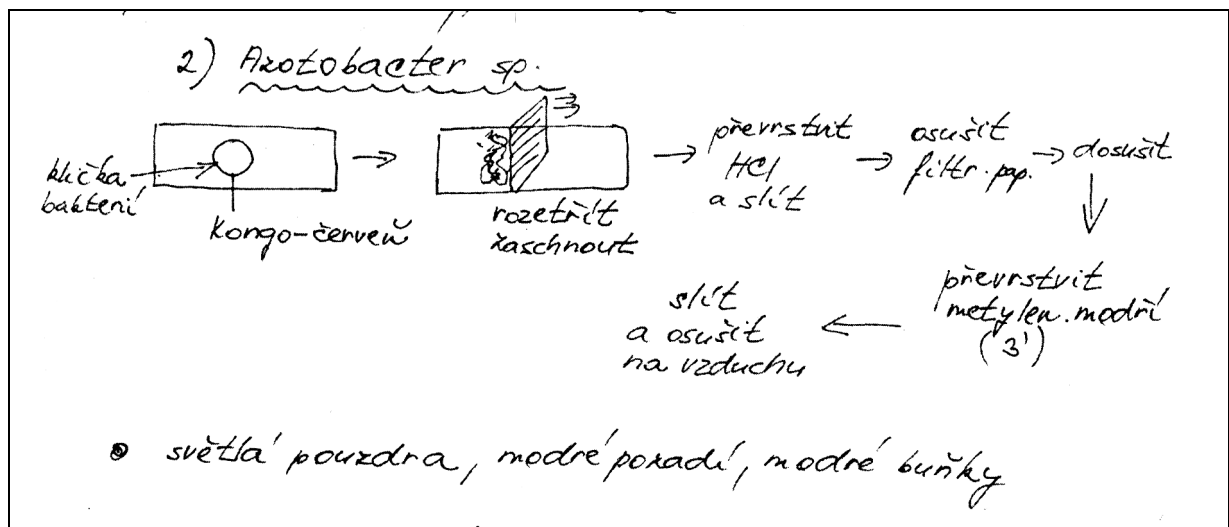 2) Azotobacter sp.
klička
bakterií
Kongo-červeň
rozetřít
zaschnout
převrstvit
HCl
a slít
osušit
filtr. pap.
dosušit
převrstvit
metylen. modří
(3')
slít
a osušit
na vzduchu
• světlá pouzdra, modré pozadí, modré buňky